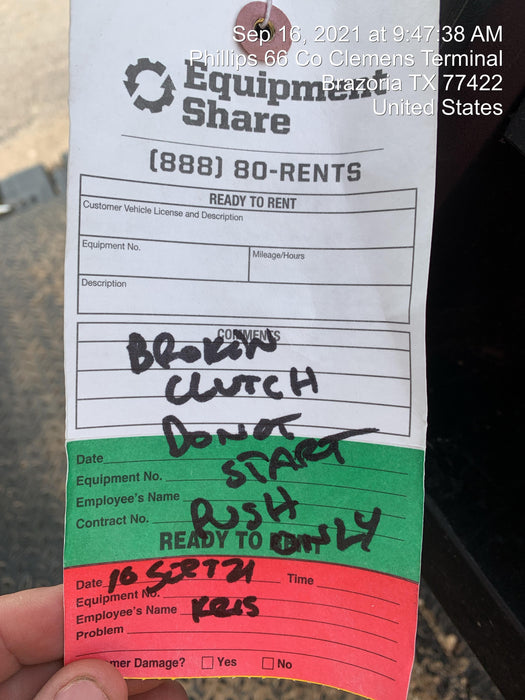 Sep 16, 2021 at 9:47:38 AM
Phillips 66 Co Clemens Terminal
Brazoria TX 77422
United States
Equipment
Share
(888) 80-RENTS
READY TO RENT
Customer Vehicle License and Description
Equipment No.
Mileage/Hours
Description
COMMENTS
BROKIN
CLUTCH
DO NOT
START
PUSH
ONLY
Date
Equipment No.
Employee's Name
Contract No.
READY TO RENT
Date 16 SEPT 21 Time
Equipment No.
Employee's Name KRIS
Problem
mer Damage? Yes No